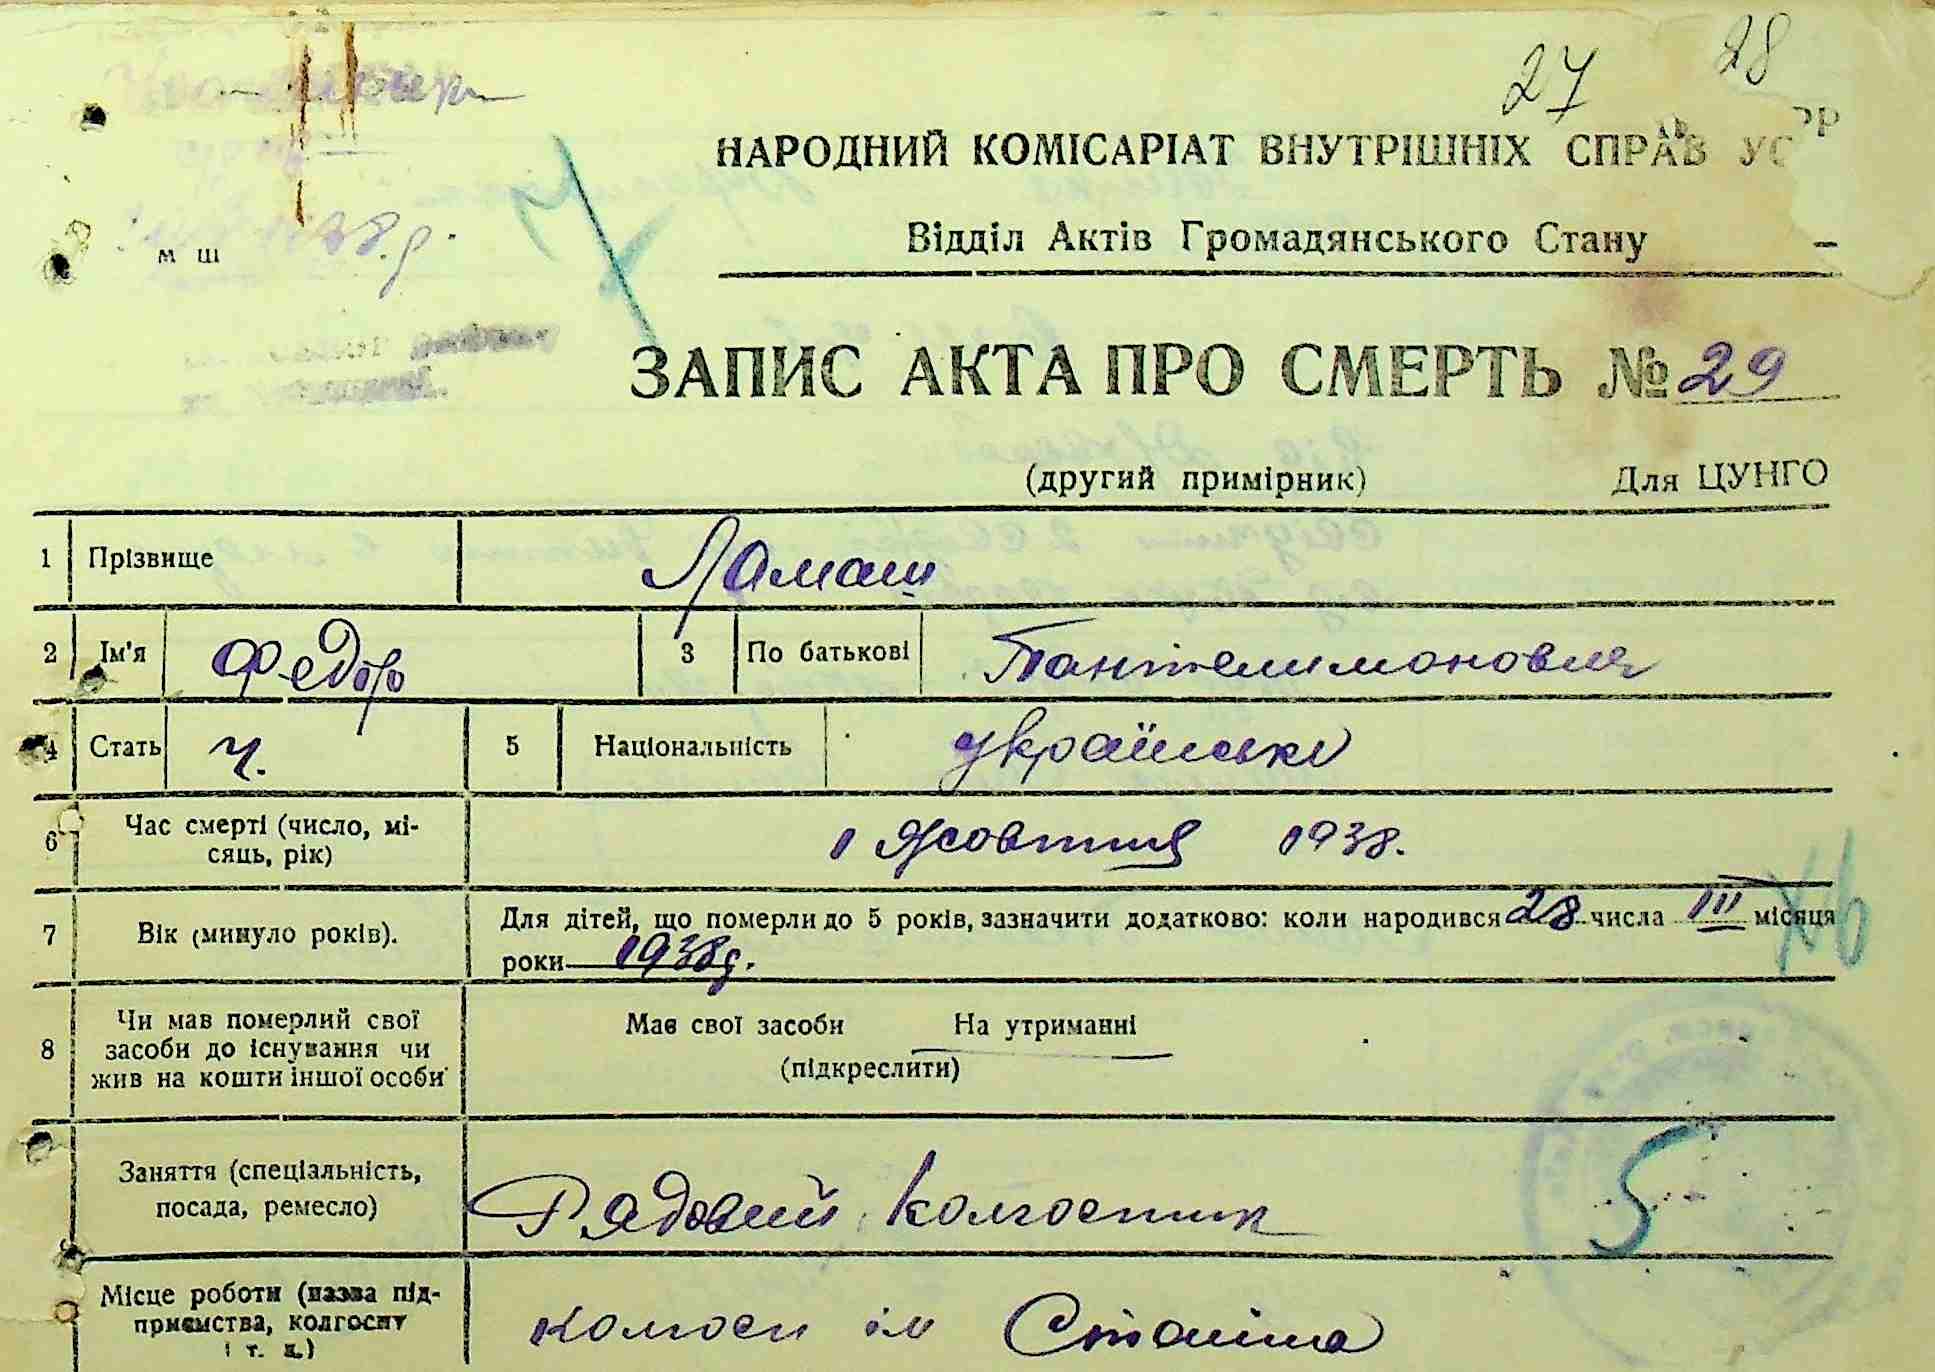 27 28
НАРОДНИЙ КОМІСАРІАТ ВНУТРІШНІХ СПРАВ УС РР
Відділ Актів Громадянського Стану
м ш 38.р.
ЗАПИС АКТА ПРО СМЕРТЬ № 29
(другий примірник) Для ЦУНГО
1 Прізвище Ламаш
2 Ім'я Федір 3 По батькові Пантелимонович
4 Стать ч. 5 Національність українське
6 Час смерті (число, мі-
сяць, рік) 1 Жовтня 1938.
7 Вік (минуло років). Для дітей, що померли до 5 років, зазначити додатково: коли народився 28 числа III місяця
роки 1938р.
8 Чи мав померлий свої
засоби до існування чи
жив на кошти іншої особи
Має свої засоби На утриманні
(підкреслити)
Заняття (спеціальність,
посада, ремесло) Рядовий колгоспник
5
Місце роботи (назва під-
приємства, колгоспу
і т. д.) колгосп ім Сталіна